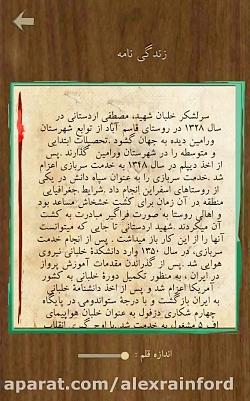 زندگی نامه
سرلشکر خلبان شهید، مصطفی اردستانی در
سال ۱۳۲۸ در روستای قاسم آباد از توابع شهرستان
ورامین دیده به جهان گشود .تحصیلات ابتدایی
و متوسطه را در شهرستان ورامین گذارند .پس
از اخذ دیپلم در سال ۱۳۴۸ به خدمت سربازی اعزام
شد .خدمت سربازی را به عنوان سپاه دانش در یکی
از روستاهای اسفراین انجام داد .شرایط جغرافیایی
منطقه در آن زمان برای کشت خشخاش مساعد بود
و اهالی روستا به صورت فراگیر مبادرت به کشت
آن میکردند .شهید اردستانی تا جایی که میتوانست
آنها را از این کار باز میداشت . پس از انجام خدمت
سربازی، در سال ۱۳۵۰ وارد دانشکدهٔ خلبانی نیروی
هوایی شد .پس از گذراندن مقدمات آموزش پرواز
در ایران ، به منظور تکمیل دورهٔ خلبانی به کشور
آمریکا اعزام شد و پس از اخذ دانشنامهٔ خلبانی
به ایران بازگشت و با درجهٔ ستواندومی در پایگاه
چهارم شکاری دزفول به عنوان خلبان هواپیمای
اف ۵ مشغول به خدمت شد .با اوج گیری انقلاب
اندازه قلم :
aparat.com/alexrainford